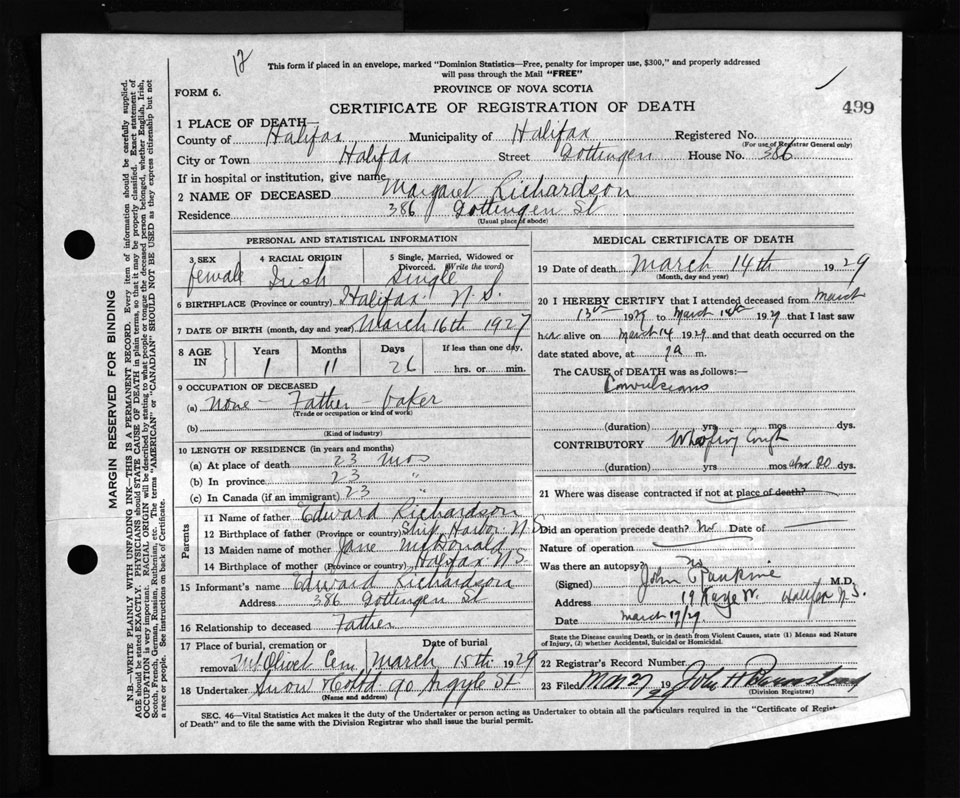 12
This form if placed in an envelope, marked "Dominion Statistics—Free, penalty for improper use, $300," and properly addressed
will pass through the Mail "FREE"
FORM 6.
PROVINCE OF NOVA SCOTIA
CERTIFICATE OF REGISTRATION OF DEATH
499
1 PLACE OF DEATH—
County of Halifax Municipality of Halifax Registered No.
(For use of Registrar General only)
City or Town Halifax Street Gottingen House No. 386
If in hospital or institution, give name
2 NAME OF DECEASED Margaret Richardson
Residence 386 Gottingen St
(Usual place of abode)
PERSONAL AND STATISTICAL INFORMATION
3 SEX female 4 RACIAL ORIGIN Irish 5 Single, Married, Widowed or Divorced. (Write the word) Single
6 BIRTHPLACE (Province or country) Halifax N.S.
7 DATE OF BIRTH (month, day and year) March 16th 1927
8 AGE IN Years 1 Months 11 Days 26 If less than one day, hrs. or min.
9 OCCUPATION OF DECEASED
(a) None - Father - baker
(Trade or occupation or kind of work)
(b)
(Kind of industry)
10 LENGTH OF RESIDENCE (in years and months)
(a) At place of death 23 mos
(b) In province 23 "
(c) In Canada (if an immigrant) 23 "
Parents
11 Name of father Edward Richardson
12 Birthplace of father (Province or country) Ship Harbor N.S.
13 Maiden name of mother Jane McDonald
14 Birthplace of mother (Province or country) Halifax N S.
15 Informant's name Edward Richardson
Address 386 Gottingen St
16 Relationship to deceased Father
17 Place of burial, cremation or removal Mt Olivet Cem Date of burial March 15th 1929
18 Undertaker Snow & Co Ltd 90 Argyle St
(Name and address)
MEDICAL CERTIFICATE OF DEATH
19 Date of death March 14th 1929
(Month, day and year)
20 I HEREBY CERTIFY that I attended deceased from March
13th 1929 to March 14th 1929 that I last saw
her alive on March 14 1929 and that death occurred on the
date stated above, at m.
The CAUSE OF DEATH was as follows:—
Convulsions
(duration) yrs mos dys.
CONTRIBUTORY Whooping Cough
(duration) yrs mos 20 dys.
21 Where was disease contracted if not at place of death?
Did an operation precede death? No Date of
Nature of operation
Was there an autopsy? No
(Signed) John M.D.
Address 19 Halifax N.S.
Date March 17/29.
State the Disease causing Death, or in death from Violent Causes, state (1) Means and Nature
of Injury, (2) whether Accidental, Suicidal or Homicidal.
22 Registrar's Record Number
23 Filed Mar 27 1929 John H
(Division Registrar)
SEC. 46—Vital Statistics Act makes it the duty of the Undertaker or person acting as Undertaker to obtain all the particulars required in the "Certificate of Regist
of Death" and to file the same with the Division Registrar who shall issue the burial permit.
MARGIN RESERVED FOR BINDING
N.B.—WRITE PLAINLY WITH UNFADING INK—THIS IS A PERMANENT RECORD. Every item of information should be carefully supplied.
AGE should be stated EXACTLY. PHYSICIANS should STATE CAUSE OF DEATH in plain terms, so that it may be properly classified. Exact statement of
OCCUPATION is very important. RACIAL ORIGIN will be described by stating to what people or tongue the deceased person belonged, whether English, Irish,
Scotch, French, German, Russian, Ruthenian, etc. The terms "AMERICAN" or "CANADIAN" SHOULD NOT BE USED as they express citizenship but not
a race or people. See instructions on back of Certificate.